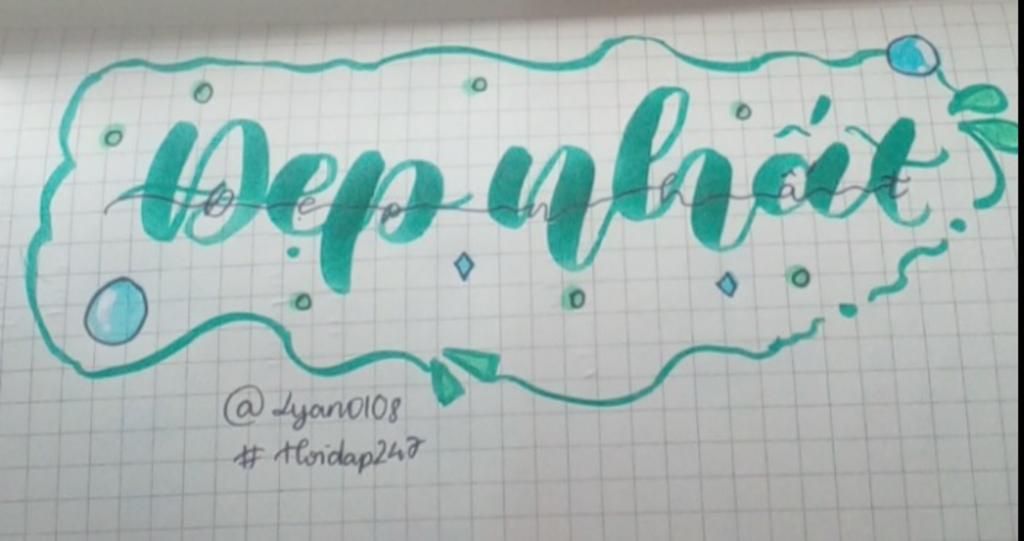 Đẹp nhất
@Lyan0108
#Hoidap247